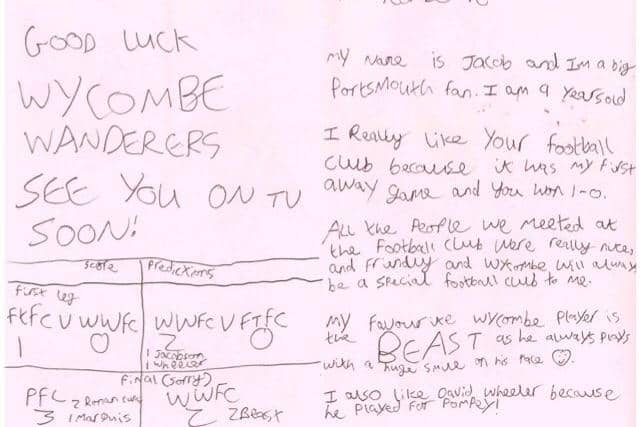 GOOD LUCK
WYCOMBE
WANDERERS
SEE YOU ON TV
SOON!
Score Predictions
First leg
FtFC V WWFC WWFC V FTFC
1 0 2 0
1 Jacobson
1 Wheeler
Final (sorry)
PFC 2 Ronan Curtis WWFC
3 1 Marquis 2 2 Beast
My Name is Jacob and Im a big
Portsmouth fan. I am 9 years old
I Really like Your football
club because it was my first
away game and you won 1-0.
All the People we meeted at
the Football Club were really nice,
and Friendly and Wycombe will always
be a special football club to me.
My favourite Wycombe Player is
the BEAST as he always plays
with a huge smile on his face
I also like David Wheeler because
he Played For Pompey!